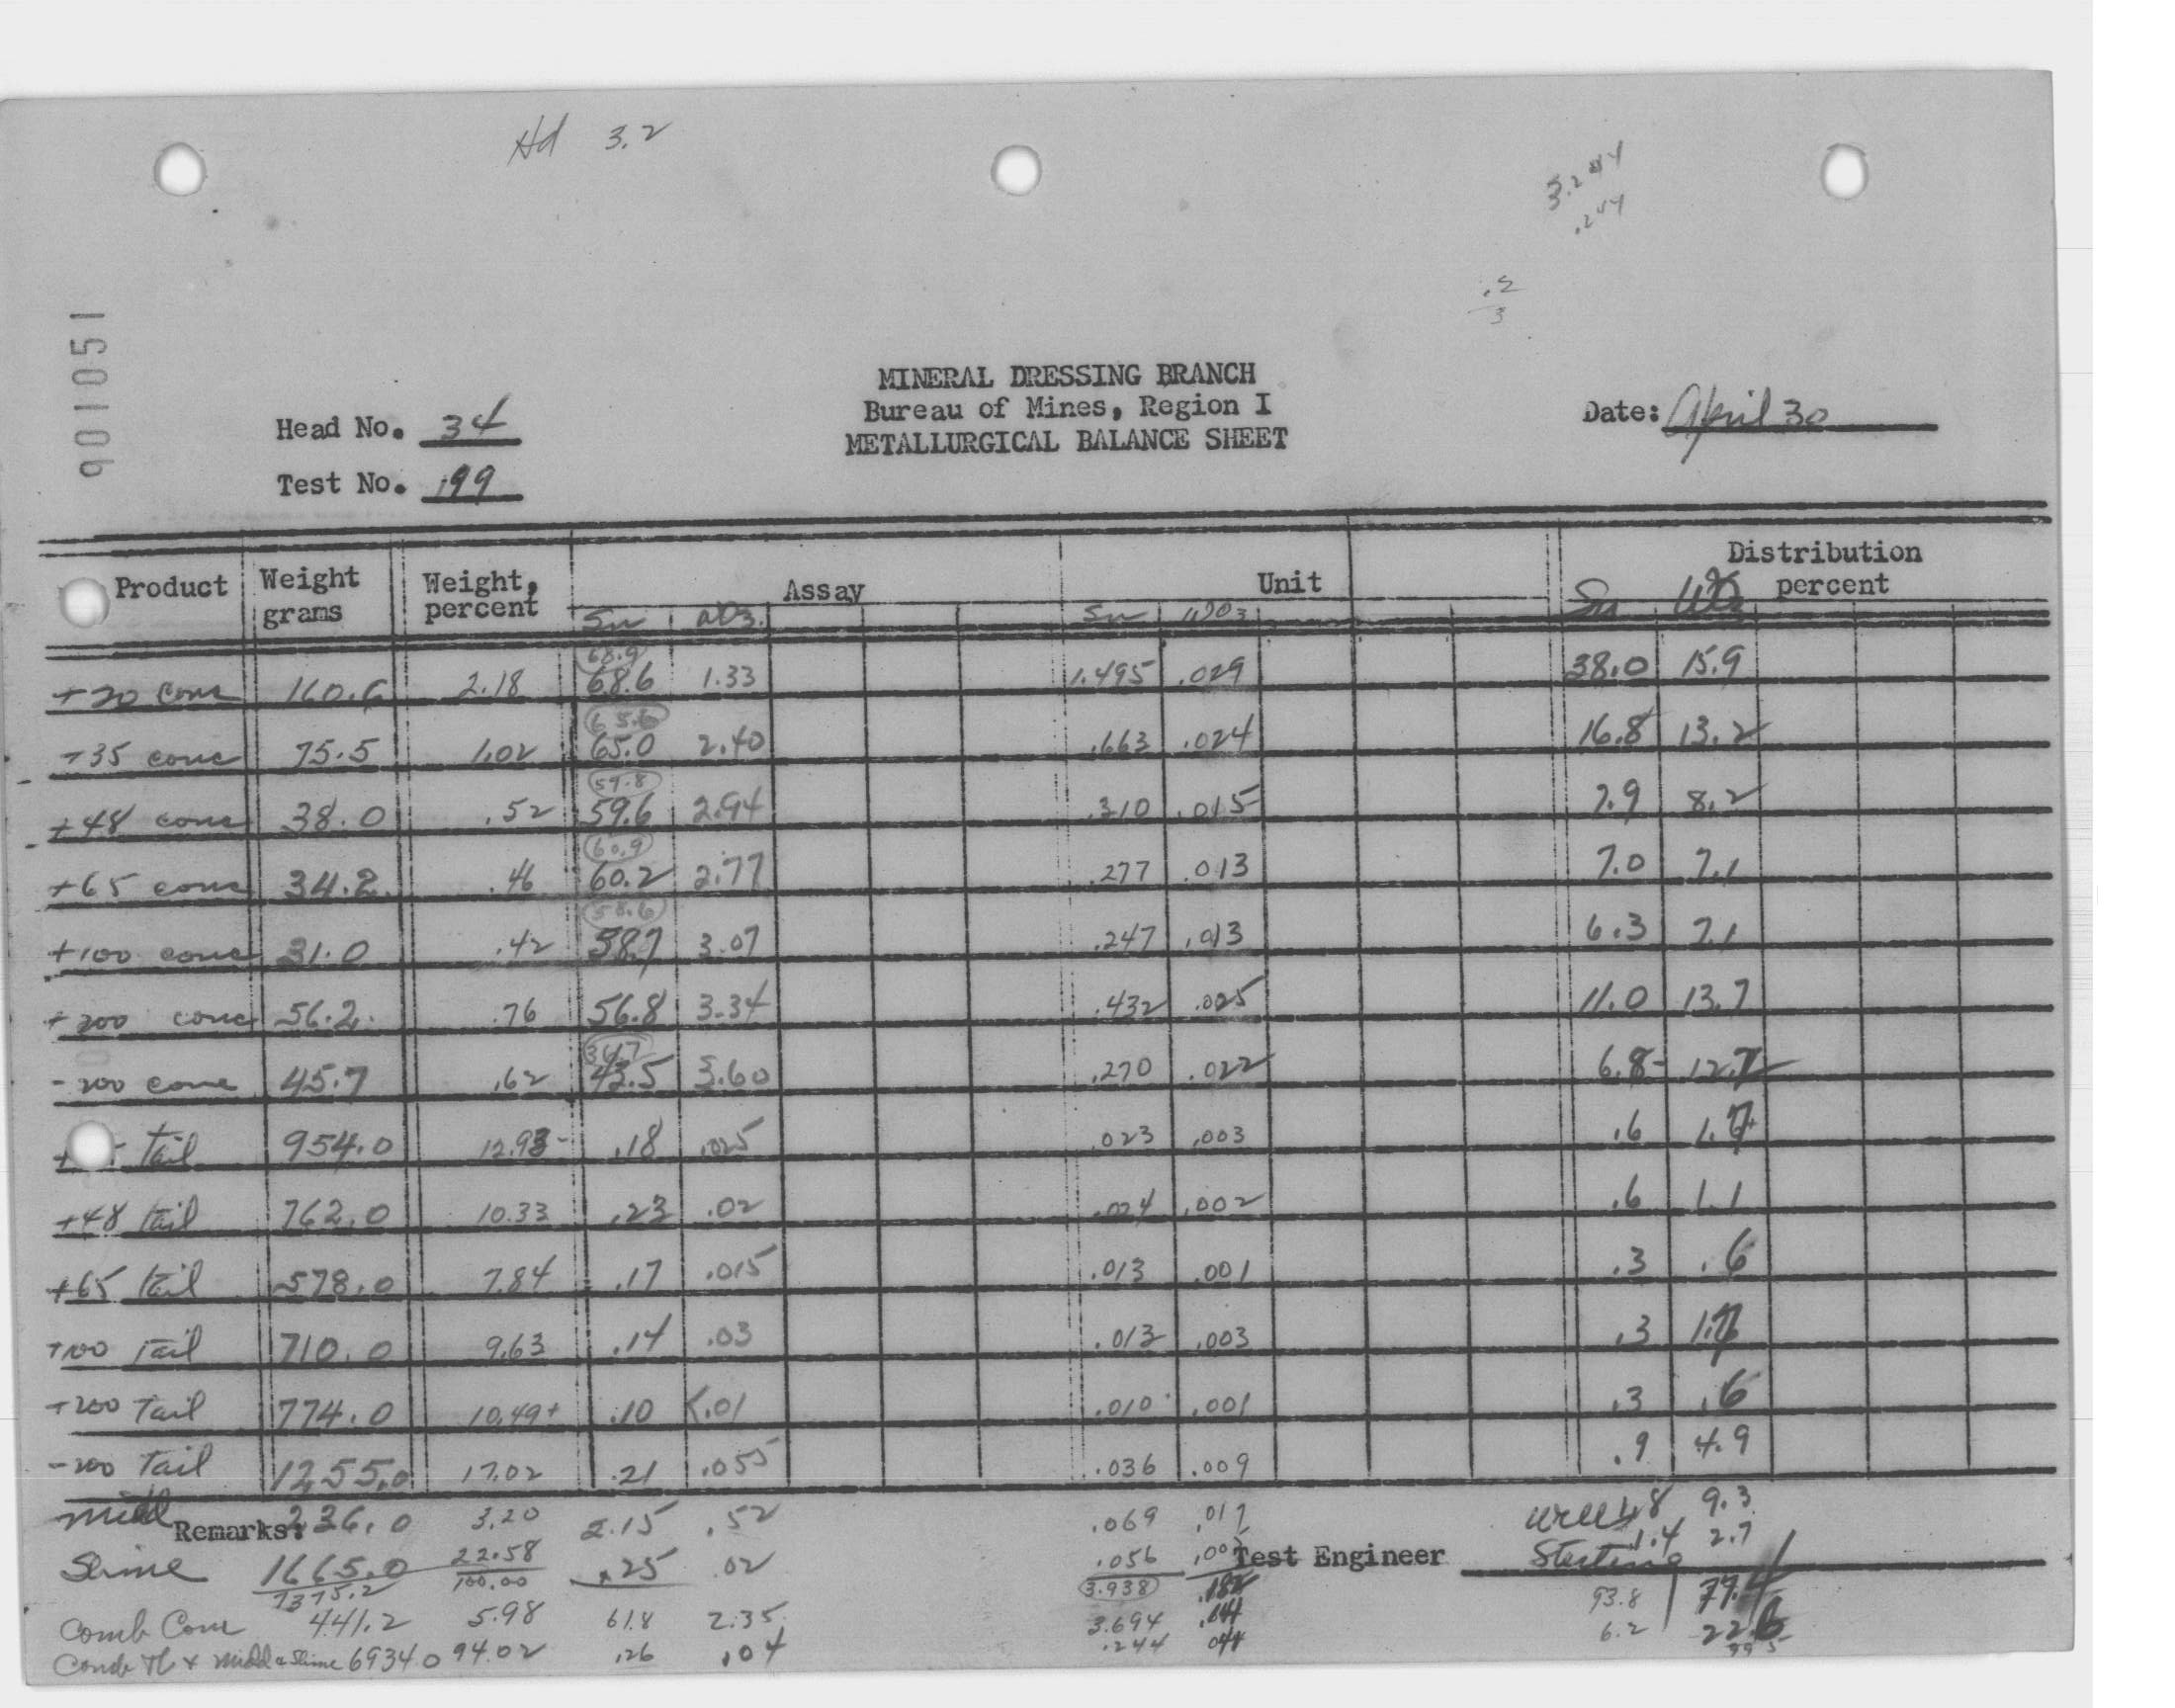 Hd 3.2
3.244
.244
.2
3
901051
MINERAL DRESSING BRANCH
Bureau of Mines, Region I
METALLURGICAL BALANCE SHEET
Head No. 34
Test No. 199
Date: April 30
Product Weight grams Weight, percent Assay Unit Distribution percent
Sn WO3 Sn WO3 Sn WO3
68.9
+20 conc 160.6 2.18 68.6 1.33 1.495 .029 38.0 15.9
65.6
+35 conc 75.5 1.02 65.0 2.40 .663 .024 16.8 13.2
59.8
+48 conc 38.0 .52 59.6 2.94 .310 .015 7.9 8.2
60.9
+65 conc 34.2 .46 60.2 2.77 .277 .013 7.0 7.1
58.6
+100 conc 31.0 .42 58.7 3.07 .247 .013 6.3 7.1
+200 conc 56.2 .76 56.8 3.34 .432 .025 11.0 13.7
34.7
-200 conc 45.7 .62 43.5 3.60 .270 .022 6.8- 12.
tail 954.0 12.93- .18 .025 .023 .003 .6 1.
+48 tail 762.0 10.33 .23 .02 .024 .002 .6 1.1
+65 tail 578.0 7.84 .17 .015 .013 .001 .3 .6
+100 tail 710.0 9.63 .14 .03 .013 .003 .3
+200 tail 774.0 10.49+ .10 <.01 .010 .001 .3 .6
-200 tail 1255.0 17.02 .21 .055 .036 .009 .9 4.9
Midd 236.0 3.20 2.15 .52 .069 .017 1.8 9.3
Remarks:
Slime 1665.0 22.58 .25 .02 .056 1.4 2.7
Test Engineer
7375.2 100.00 3.938 .182
Comb Conc 441.2 5.98 61.8 2.35 3.694 .141 93.8
Comb Tl + Midd & Slime 6934.0 94.02 .26 .04 .244 .041 6.2
99.5